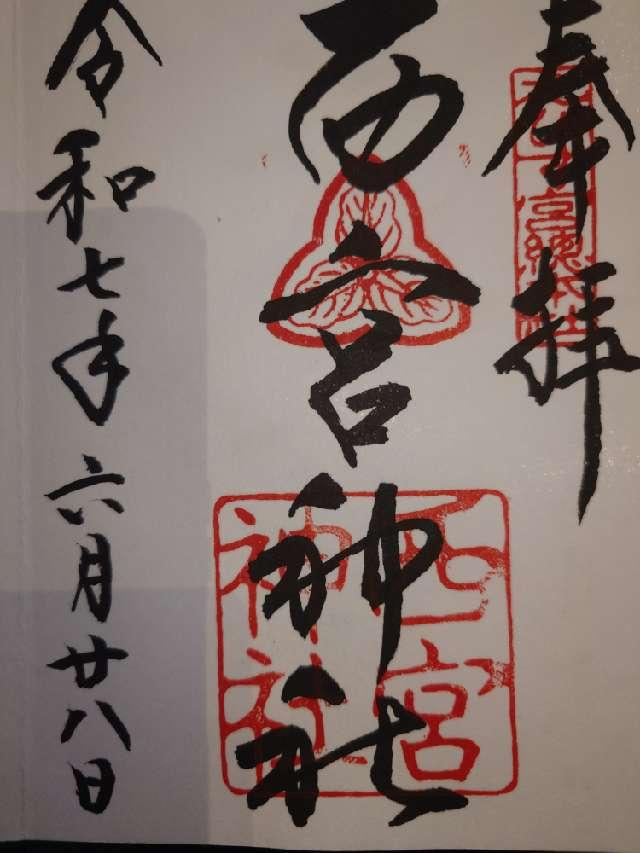 奉拝
西宮神社
西宮
神社
令和七年六月廿八日